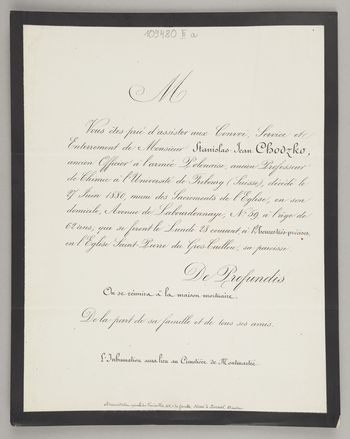 109480 II a
M
Vous êtes prié d'assister aux Convoi, Service et
Enterrement de Monsieur Stanislas Jean Chodzko,
ancien Officier à l'armée Polonaise, ancien Professeur
de Chimie à l'Université de Fribourg (Suisse), décédé le
27 Juin 1880, muni des Sacrements de l'Église, en son
domicile, Avenue de Labourdonnaye, N° 59, à l'âge de
62 ans, qui se feront le Lundi 28 courant, à très-précises,
en l'Église Saint Pierre du Gros Caillou, sa paroisse.
De Profundis
On se réunira à la maison mortuaire.
De la part de sa famille et de tous ses amis.
L'Inhumation aura lieu au Cimetière de Montmartre.